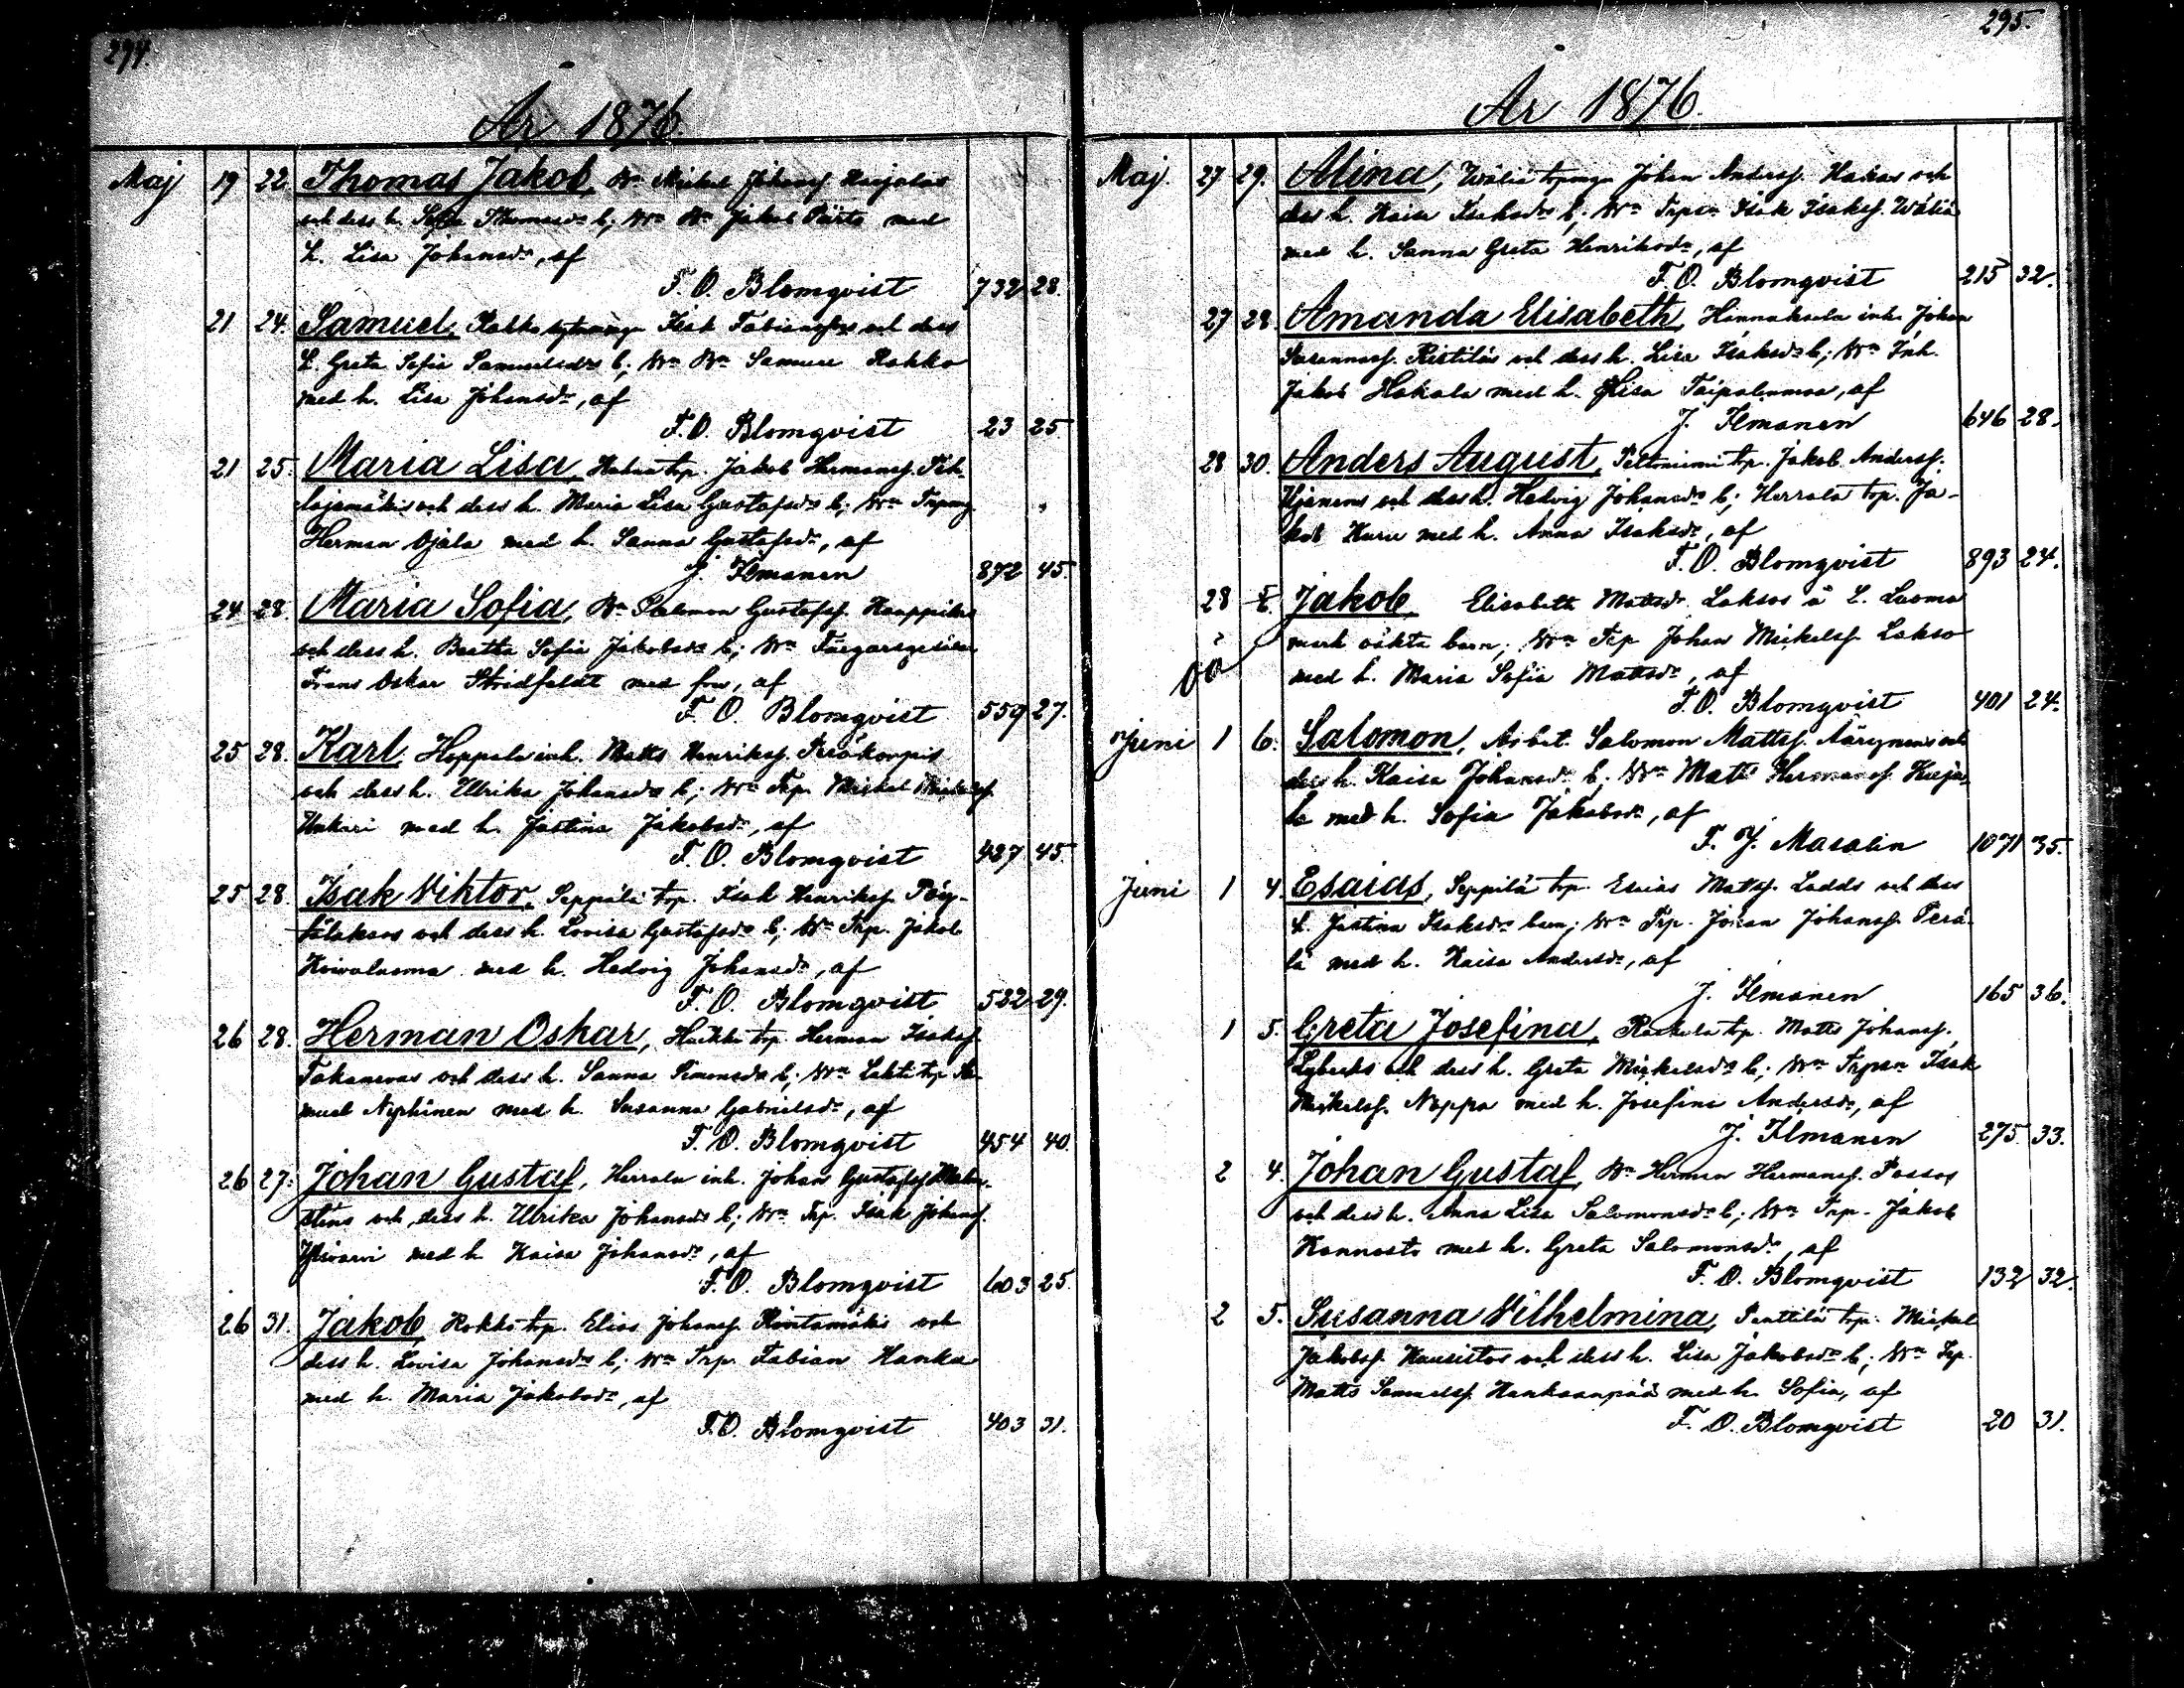 294.
År 1876.
Maj 19 22. Thomas Jakob, Bn Mickel Johansf. Harjalas
och dess h. Sofia Thomasdr b; Wn Bn Jakob Pärto med
h. Lisa Johansdr, af
F. O. Blomqvist 732 28.
21 24. Samuel, Rahko Isak och dess
h. Greta Sofia Samuelsdrs b; Wn Bn Samuel Rahko
med h. Lisa Johansdr, af
F. O. Blomqvist 23 25.
21 25. Maria Lisa, trp. Jakob Hermansf. Pih-
lajamäkis och dess h. Maria Lisa Gustafsdrs b; Wn
Herman Ojala med h. Sanna Gustafsdr, af
J. Ilmanen 872 45.
24 28. Maria Sofia, Bn Salomon Gustafsf. Kauppilas
och dess h. Beatta Sofia Jakobsdrs b; Wn Färgaregesällen
Frans Oskar Stridfeldt med fru, af
F. O. Blomqvist 559 27.
25 28. Karl, Hoppala inh. Matts Henriksf. Peräkorpis
och dess h. Ulrika Johansdrs b; Wn Trp. Mickel Mickelsf.
Unkari med h. Justina Jakobsdr, af
F. O. Blomqvist 427 45.
25 28. Isak Viktor, Seppälä trp. Isak Henriksf.
och dess h. Lovisa Gustafsdrs b; Wn Trp. Jakob
Koivuluoma med h. Hedvig Johansdr, af
F. O. Blomqvist 532 29.
26 28. Herman Oskar, trp. Herman Isaksf.
och dess h. Sanna Simonsdrs b; Wn Lahti trp Sa-
muel Nyrhinen med h. Susanna Gabrielsdr, af
F. O. Blomqvist 454 40.
26 27. Johan Gustaf, Herrala inh. Johan Gustafsf. Malm-
stens och dess h. Ulrika Johansdrs b; Wn Trp. Isak Johansf.
med h. Kaisa Johansdr, af
F. O. Blomqvist 603 25.
26 31. Jakob, Kokko trp. Elias Johansf. Rintamäkis och
dess h. Lovisa Johansdrs b; Wn Trp. Fabian Hanka
med h. Maria Jakobsdr, af
F. O. Blomqvist 403 31.
295.
År 1876.
Maj. 27 29. Alina, Wäliä Johan Andersf. Hakas och
dess h. Kaisa Isaksdrs b; Wn Trpsn Isak Isaksf. Wäliä
med h. Sanna Greta Henriksdr, af
F. O. Blomqvist 215 32.
27 28. Amanda Elisabeth, Hannuksela inh. Johan
Susannasf. Ristiläs och dess h. Lisa Isaksdrs b; Wn Inh.
Jakob Hakala med h. Lisa Taipalenmaa, af
J. Ilmanen 646 28.
28 30. Anders August, Peltoniemi trp. Jakob Andersf.
och dess h. Hedvig Johansdrs b; Herrala trp. Ja-
kob Kuru med h. Anna Isaksdr, af
F. O. Blomqvist 893 24.
28 Jakob, Elisabeth Mattsdr Laksos å L. Luoma
mark oäkta barn; Wn Trp Johan Mickelsf. Lakso
med h. Maria Sofia Mattsdr, af
F. O. Blomqvist 401 24.
Juni 1 6. Salomon, Arbet. Salomon Mattsf. Äärynens och
dess h. Kaisa Johansdrs b; Wn Matts Hermansf. Harja-
la med h. Sofia Jakobsdr, af
F. J. Masalin 1071 35.
Juni 1 4. Esaias, Seppilä trp. Esaias Mattsf. Ladds och dess
h. Justina Isaksdrs barn; Wn Trp. Johan Johansf. Perä-
lä med h. Kaisa Andersdr, af
J. Ilmanen 165 36.
1 5. Greta Josefina, trp. Matts Johansf.
Lybecks och dess h. Greta Mickelsdrs b; Wn Trpsn Isak
Mickelsf. Noppa med h. Josefina Andersdr, af
J. Ilmanen 275 33.
2 4. Johan Gustaf, Bn Herman Hermansf. Passos
och dess h. Anna Lisa Salomonsdrs b; Wn Trp. Jakob
Kannosto med h. Greta Salomonsdr, af
F. O. Blomqvist 132 32.
2 5. Susanna Vilhelmina, Penttilä trp. Mickel
Jakobsf. Kauristos och dess h. Lisa Jakobsdrs b; Wn Trp.
Matts Samuelsf. Kankaanpää med h. Sofia, af
F. O. Blomqvist 20 31.